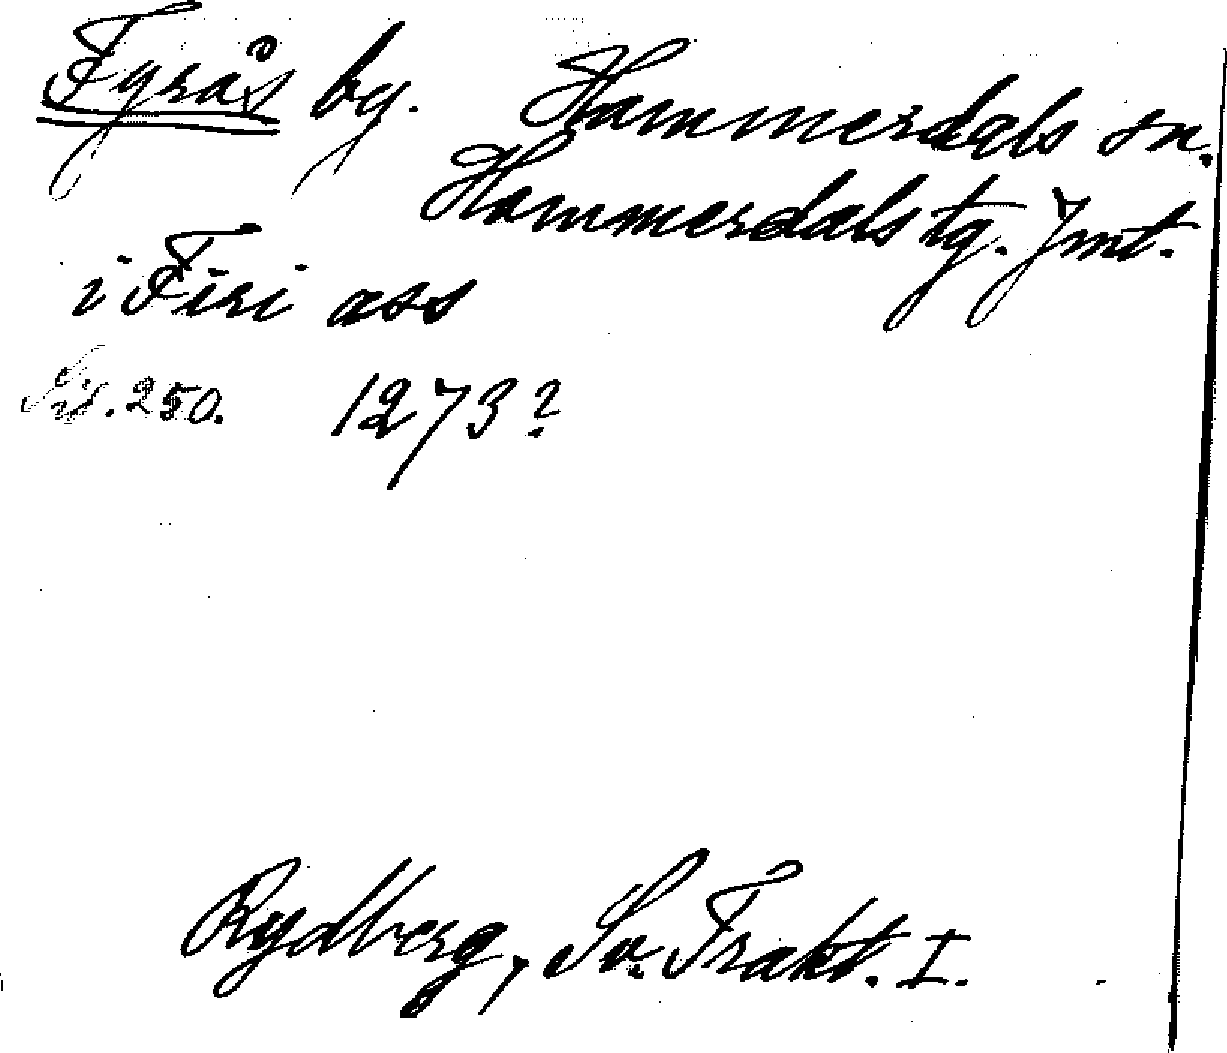 Fyrås by. Hammerdals sn.
Hammerdals tg. Jmt.
i Firi ass
Sid. 250. 1273?
Rydberg, Sv. Trakt. I.